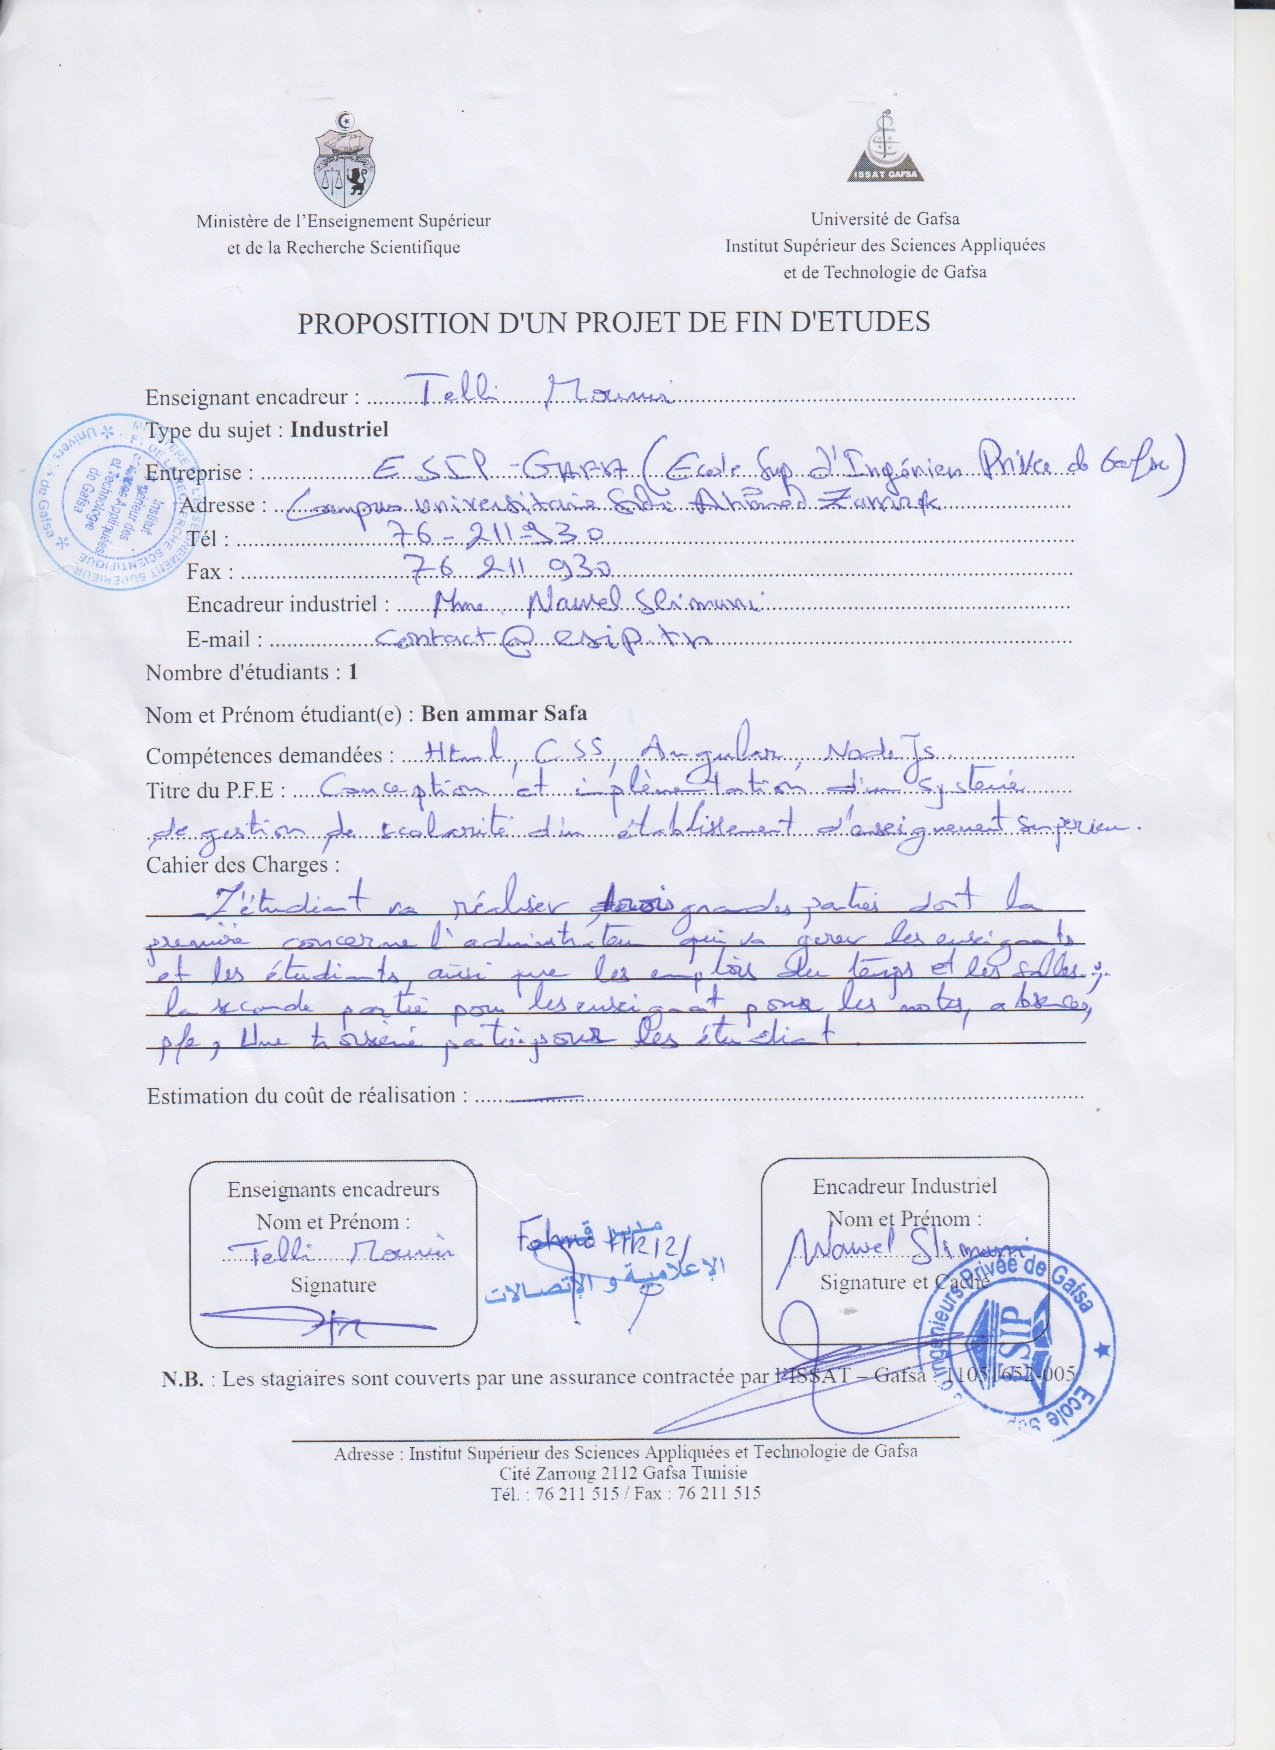 ISSAT GAFSA
Ministère de l'Enseignement Supérieur
et de la Recherche Scientifique
Université de Gafsa
Institut Supérieur des Sciences Appliquées
et de Technologie de Gafsa
PROPOSITION D'UN PROJET DE FIN D'ETUDES
Enseignant encadreur : Telli Mounir
Type du sujet : Industriel
Entreprise : ESIP-GAFSA (Ecole Sup d'Ingénieu Privée de Gafsa)
Adresse : Campus universitaire Sidi Ahmed Zarrouk
Tél : 76-211-930
Fax : 76 211 930
Encadreur industriel : Mme Nawel Slimumi
E-mail : contact@esip.tn
Nombre d'étudiants : 1
Nom et Prénom étudiant(e) : Ben ammar Safa
Compétences demandées : Html, CSS, Angular, Node Js
Titre du P.F.E : Conception et implémentation d'un système
de gestion de scolarité d'un établissement d'enseignement superieu.
Cahier des Charges :
L'étudiant va réaliser trois grandes parties dont la
première concerne l'administrateu qui va gerer les enseignants
et les étudiants, ainsi que les emplois du temps et les salles;
la seconde partie pour les enseignant pour les notes, absences,
pfe, Une troisième partie pour les étudiant.
Estimation du coût de réalisation :
Enseignants encadreurs
Nom et Prénom :
Telli Mounir
Signature
مدير قسم
الإعلامية و الإتصالات
Encadreur Industriel
Nom et Prénom :
Nawel Slimumi
Signature et Cachet
ESIP
Ecole Sup d'Ingénieurs Privée de Gafsa
N.B. : Les stagiaires sont couverts par une assurance contractée par l'ISSAT – Gafsa : 11051652-005
Adresse : Institut Supérieur des Sciences Appliquées et Technologie de Gafsa
Cité Zarroug 2112 Gafsa Tunisie
Tél. : 76 211 515 / Fax : 76 211 515